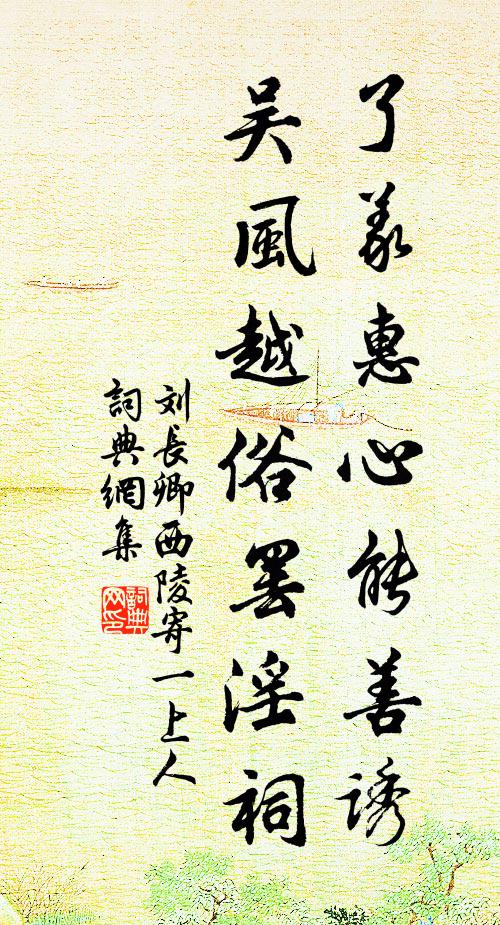 了義惠心能善誘
吳風越俗罢淫祠
刘長卿西陵寄一上人
詞典網集
詞典網印